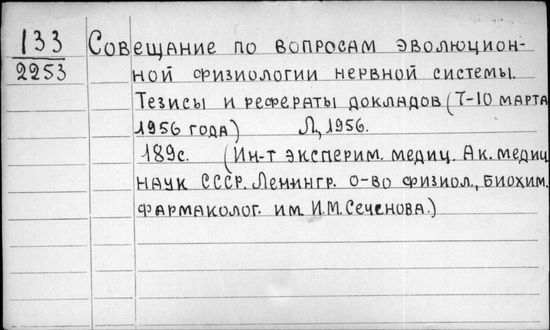 133 Совещание по вопросам эволюцион-
2253 ной физиологии нервной системы.
Тезисы и рефераты докладов (7-10 марта
1956 года) Л, 1956.
189с. (Ин-т эксперим. медиц. Ак. медиц
наук СССР. Ленингр. о-во физиол., биохим.
фармаколог. им. И.М. Сеченова.)